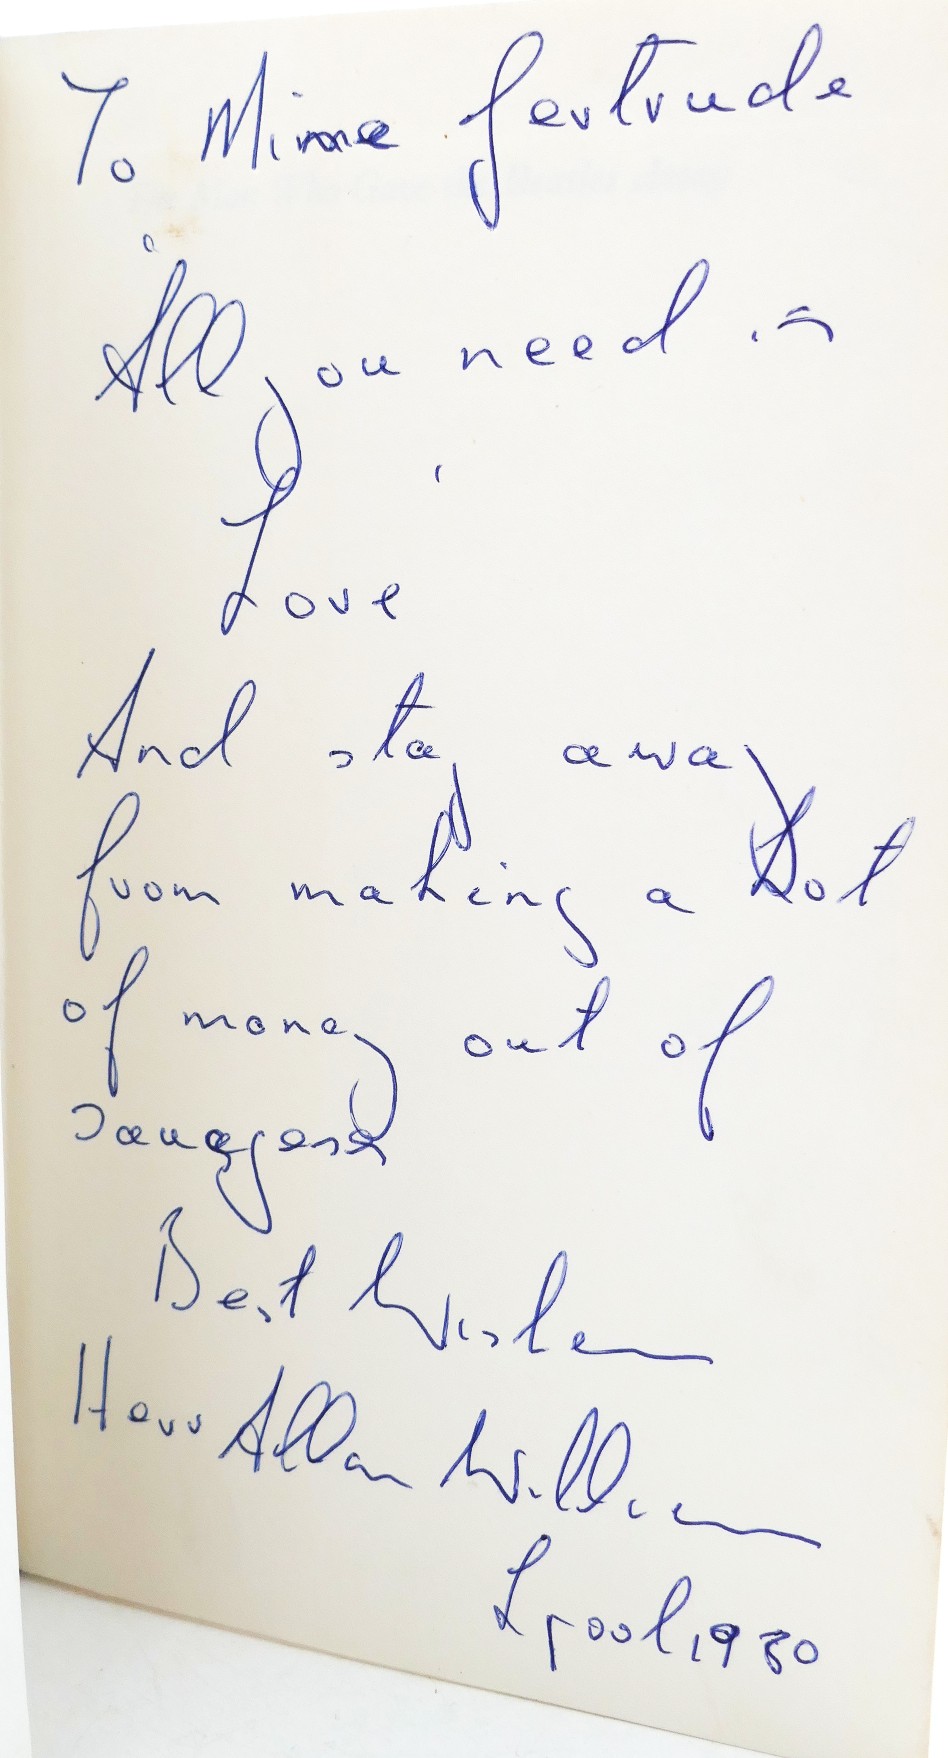 To Gertrude
All you need is
Love
And stay away
from making a Lot
of money out of
Best Wishes
Herr Allan Williams
Lpool, 1980